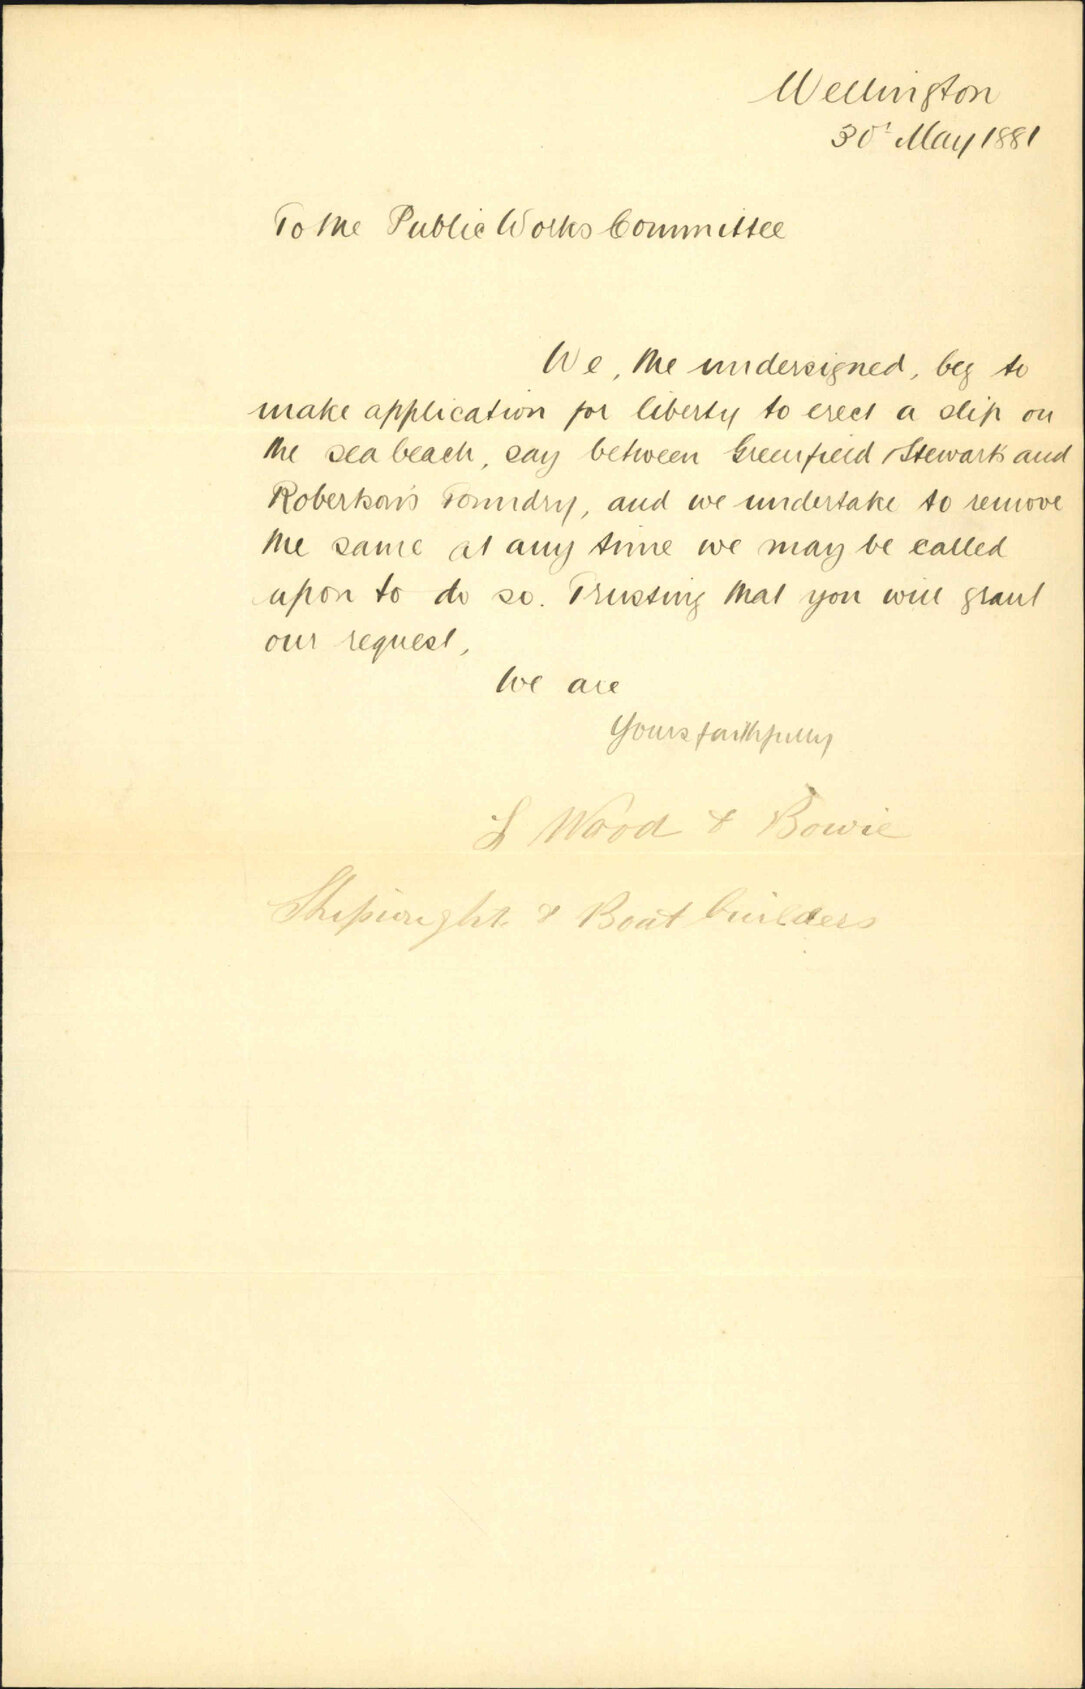 Wellington
30t May 1881
To the Public Works Committee
We, the undersigned, beg to
make application for liberty to erect a slip on
the sea beach, say between Greenfield Stewarts and
Robertson's Foundry, and we undertake to remove
the same at any time we may be called
upon to do so. Trusting that you will grant
our request,
We are
Yours faithfully
Wood & Bowie
Shipwright & Boat builders